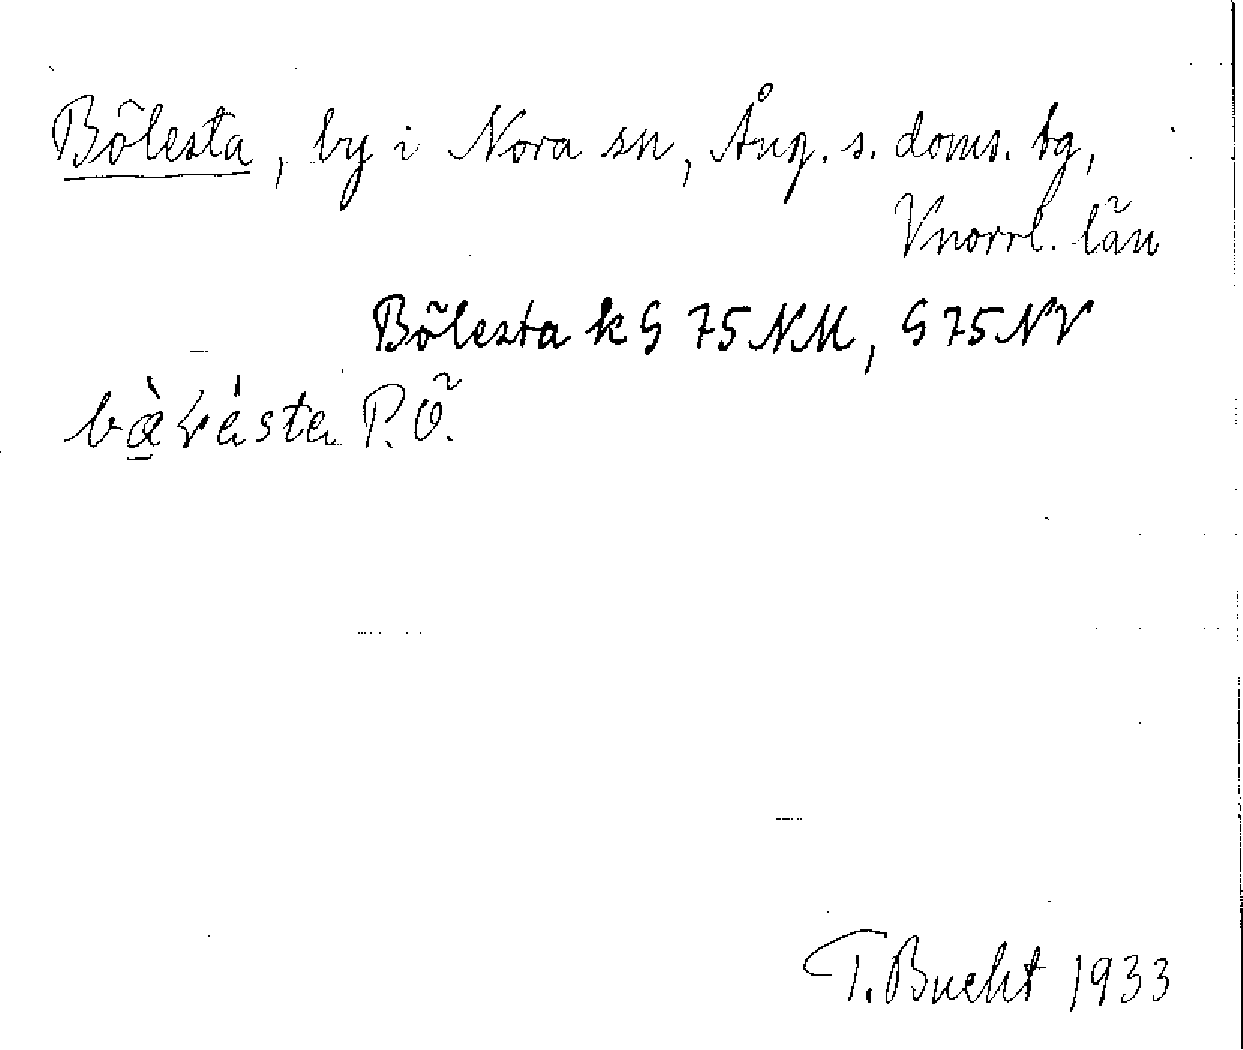 Bölesta, by i Nora sn, Ång. s. doms. tg,
Vnorrl. län
Bölesta k G 75 NM, G 75 NV
P. Ö.
T. Bucht 1933